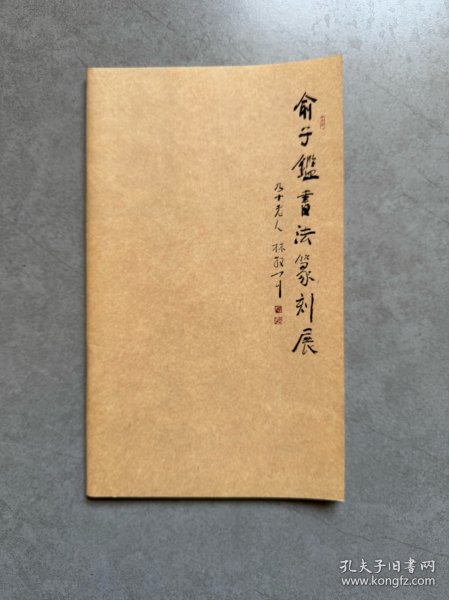 俞子鑑書法篆刻展
九十老人 林散
孔夫子旧书网
www.kongfz.com